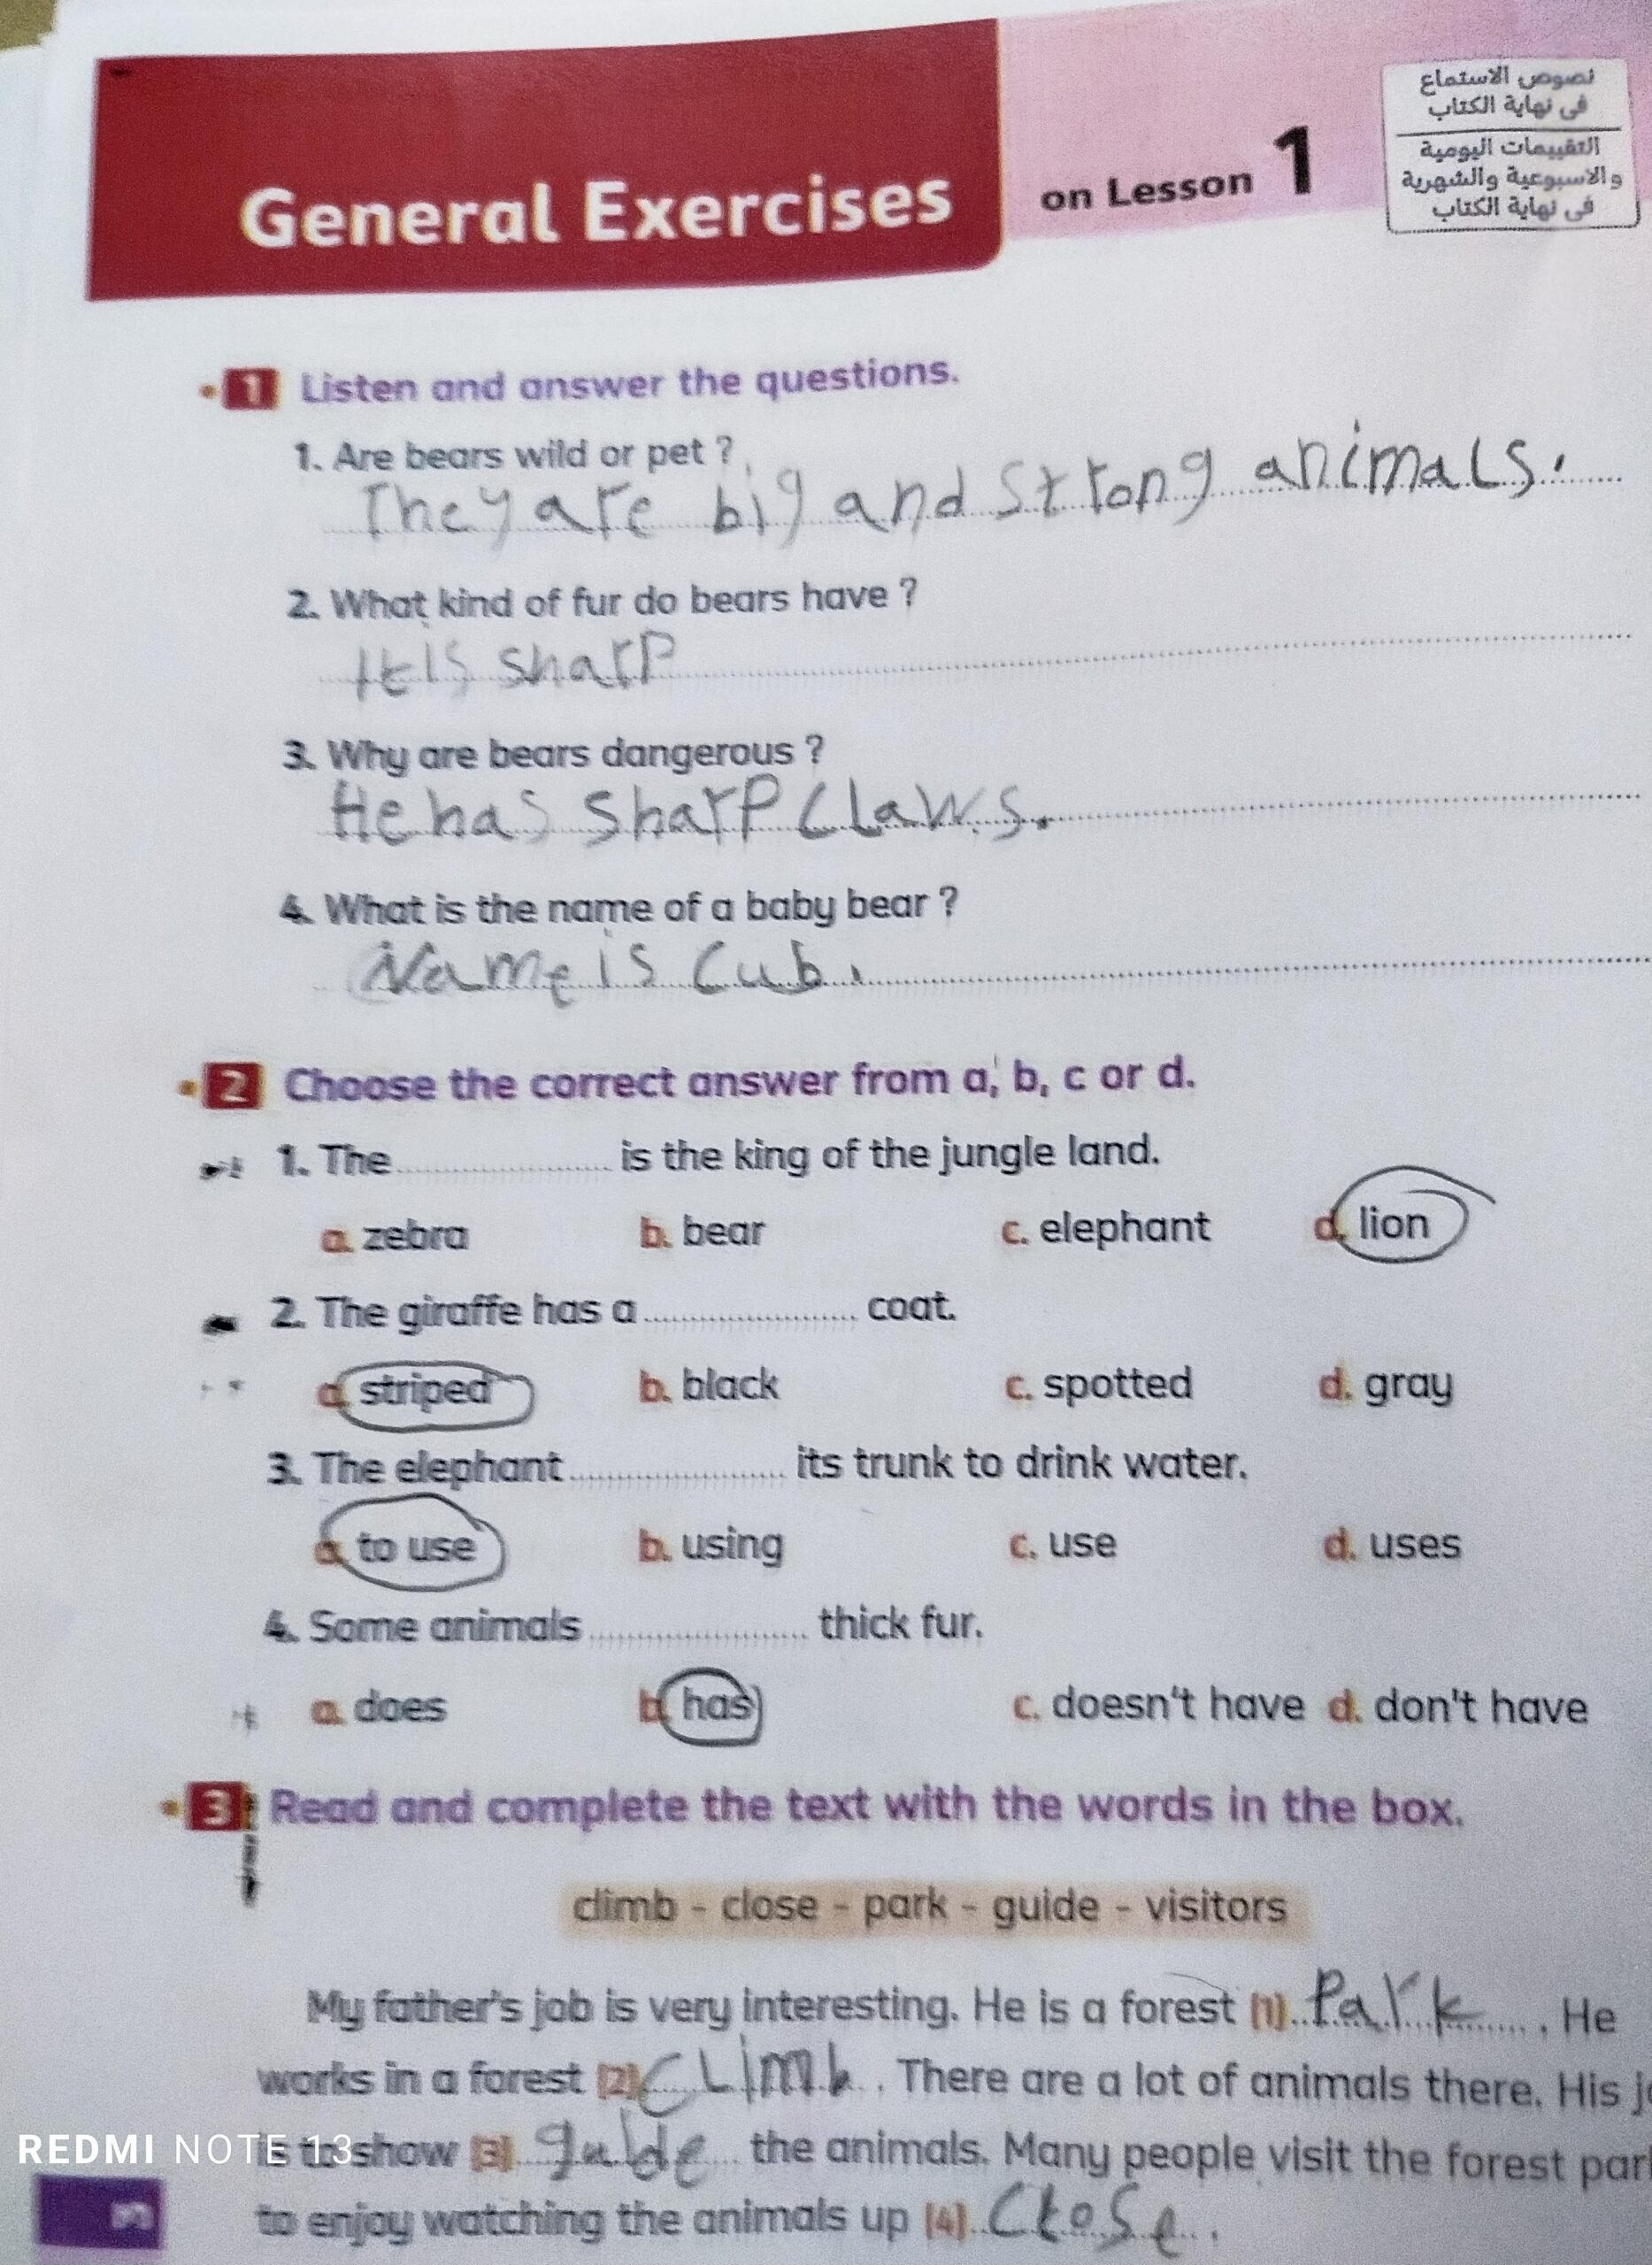 General Exercises on Lesson 1
نصوص الاستماع
فى نهاية الكتاب
التقييمات اليومية
والاسبوعية والشهرية
فى نهاية الكتاب
1 Listen and answer the questions.
1. Are bears wild or pet ?
They are big and strong animals.
2. What kind of fur do bears have ?
It is sharp
3. Why are bears dangerous ?
He has sharp claws.
4. What is the name of a baby bear ?
Name is Cub.
2 Choose the correct answer from a, b, c or d.
1. The ........ is the king of the jungle land.
a. zebra b. bear c. elephant d. lion
2. The giraffe has a ........ coat.
a. striped b. black c. spotted d. gray
3. The elephant ........ its trunk to drink water.
a. to use b. using c. use d. uses
4. Some animals ........ thick fur.
a. does b. has c. doesn't have d. don't have
3 Read and complete the text with the words in the box.
climb - close - park - guide - visitors
My father's job is very interesting. He is a forest (1) Park . He
works in a forest (2) CLimb . There are a lot of animals there. His
is to show (3) guide the animals. Many people visit the forest
to enjoy watching the animals up (4) Close .
REDMI NOTE 13